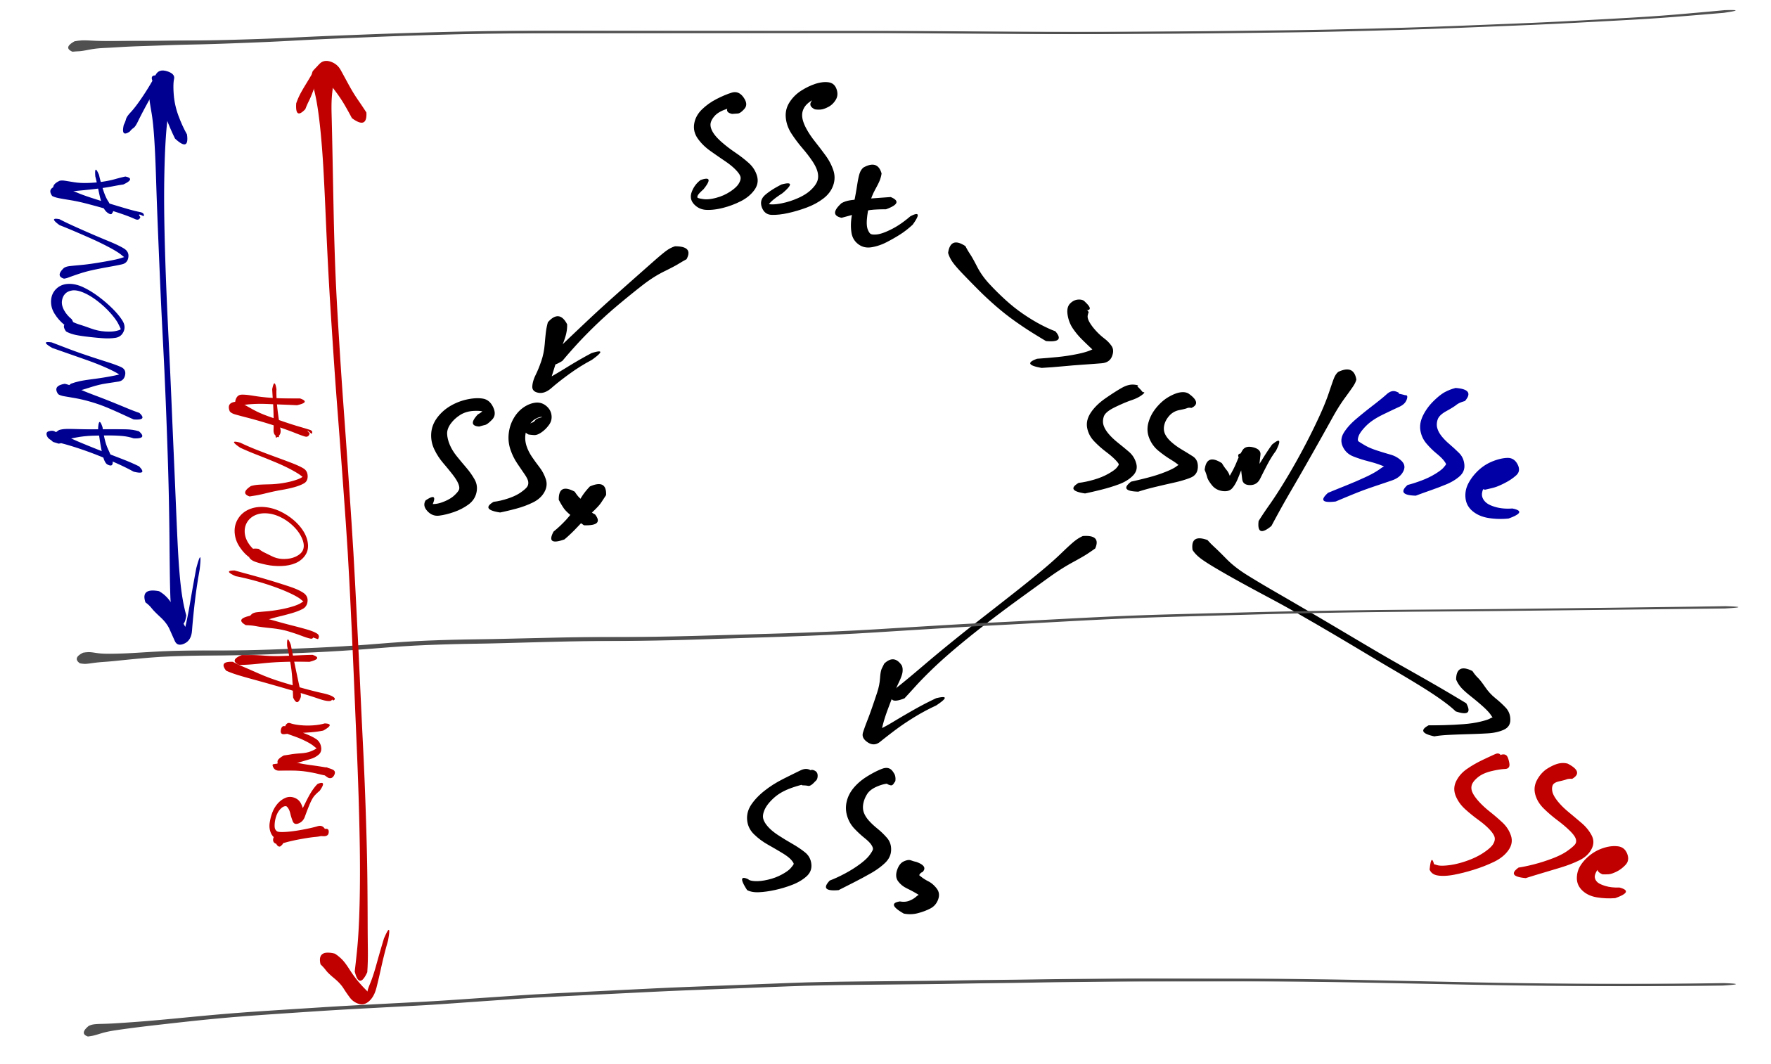 ANOVA
RMANOVA
SSt
SSx
SSw/SSe
SSs
SSe